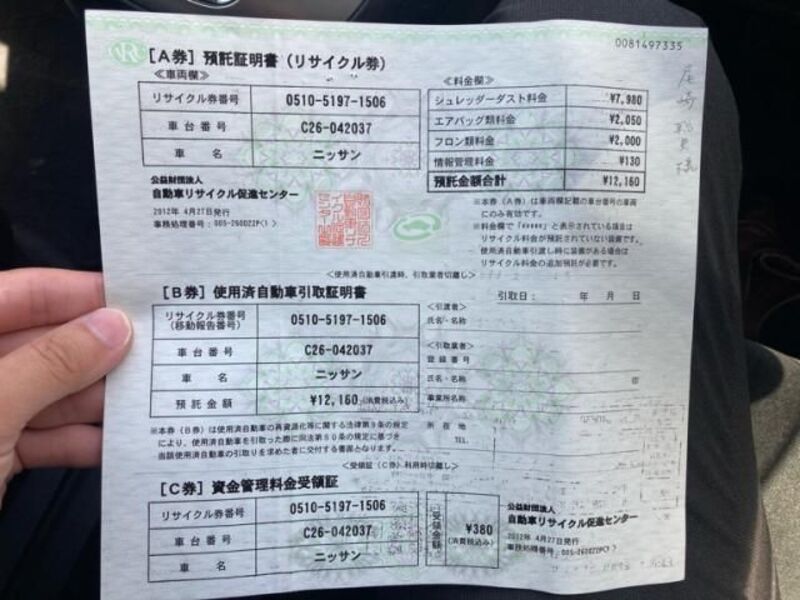 0081497335
[A券] 預託証明書 (リサイクル券)
≪車両欄≫
リサイクル券番号 0510-5197-1506
車台番号 C26-042037
車名 ニッサン
≪料金欄≫
シュレッダーダスト料金 ¥7,980
エアバッグ類料金 ¥2,050
フロン類料金 ¥2,000
情報管理料金 ¥130
預託金額合計 ¥12,160
公益財団法人
自動車リサイクル促進センター
2012年 4月27日発行
※本券(A券)は車両欄記載の車台番号の車両
にのみ有効です。
※料金欄で「*****」と表示されている項目は
リサイクル料金が預託されていない装備です。
使用済自動車引渡し時に装備がある場合は
リサイクル料金の追加預託が必要です。
<使用済自動車引渡時、引取業者切離し>
[B券] 使用済自動車引取証明書
引取日: 年 月 日
リサイクル券番号
(移動報告番号) 0510-5197-1506
車台番号 C26-042037
車名 ニッサン
預託金額 ¥12,160(消費税込み)
<引渡者>
氏名・名称
<引取業者>
登録番号
氏名・名称 ㊞
事業所名称
所在地
TEL.
※本券(B券)は使用済自動車の再資源化等に関する法律第9条の規定
により、使用済自動車を引取った際に同法第80条の規定に基づき
当該使用済自動車の引取りを求めた者に交付する書面となります。
<受領証(C券)利用時切離し>
[C券] 資金管理料金受領証
リサイクル券番号 0510-5197-1506
車台番号 C26-042037
車名 ニッサン
受領金額 ¥380
(消費税込み)
公益財団法人
自動車リサイクル促進センター
2012年 4月27日発行